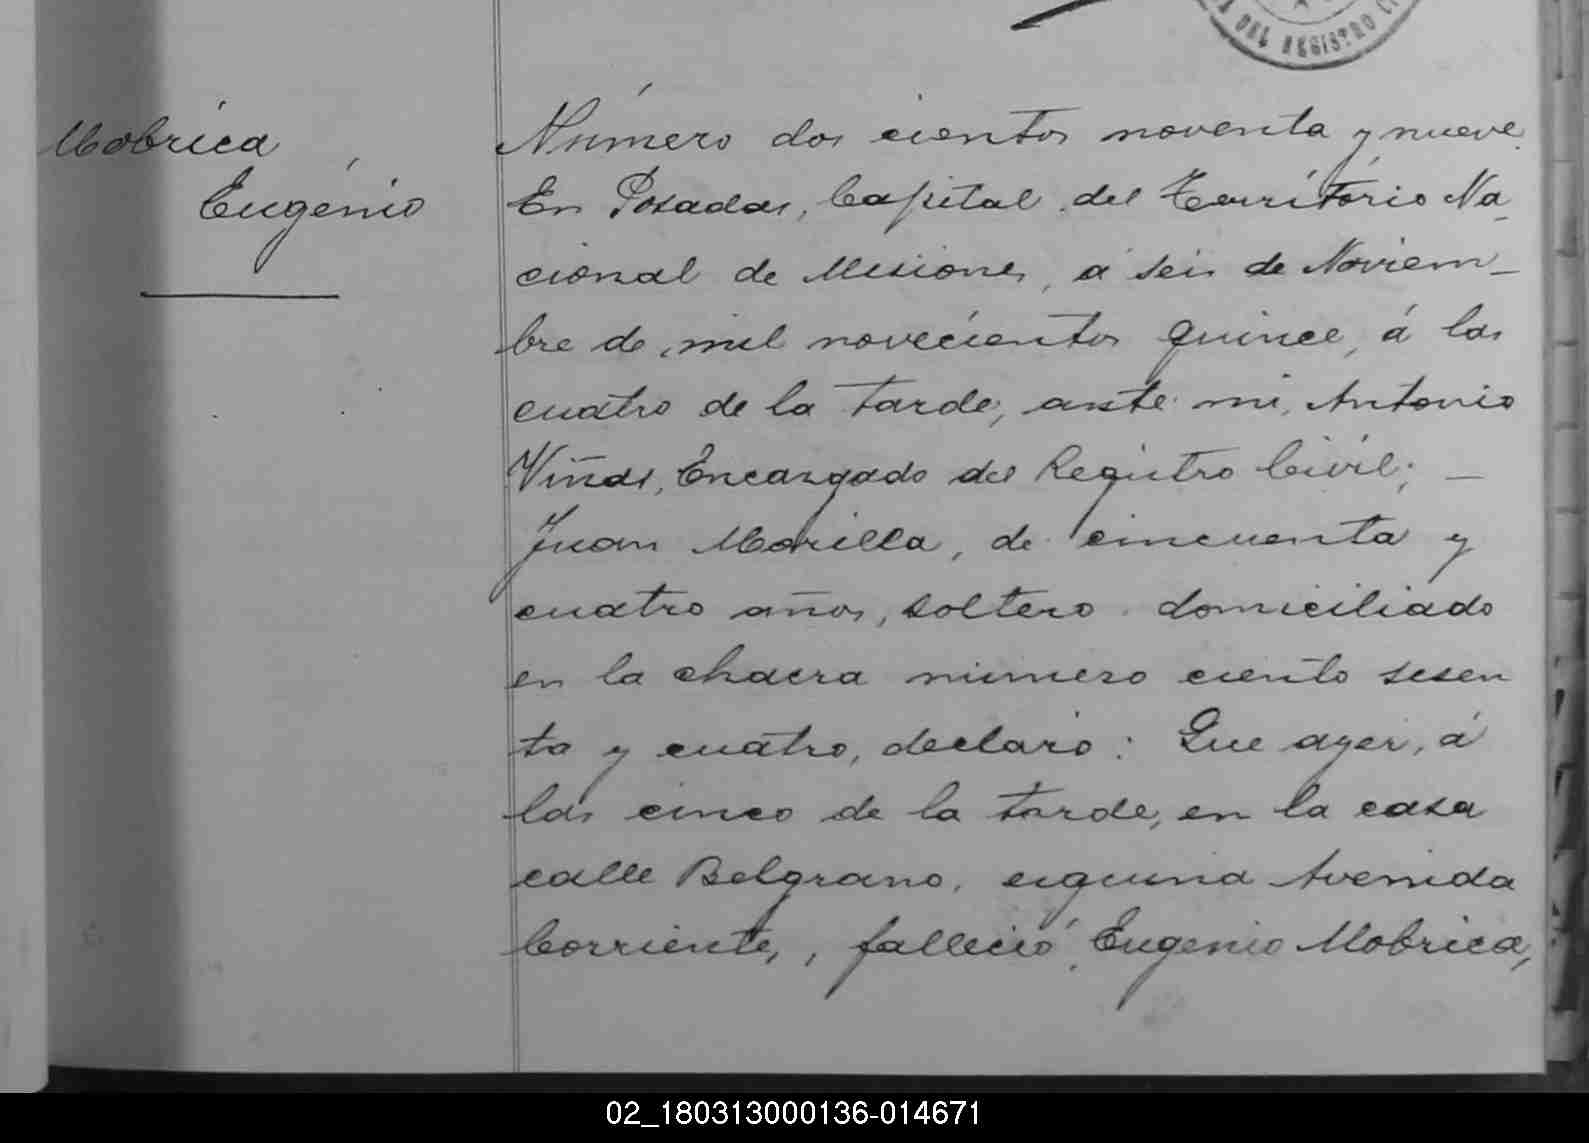 DEL REGISTRO CI
Mobrica
Eugenio
Número dos cientos noventa y nueve.
En Posadas, Capital del Território Na-
cional de Misiones, á seis de Noviem-
bre de mil novecientos quince, á las
cuatro de la tarde, ante mi, Antonio
Viñas, Encargado del Registro Civil; —
Juan Morilla, de cincuenta y
cuatro años, soltero domiciliado
en la chacra número ciento sesen
ta y cuatro, declaró: Que ayer, á
las cinco de la tarde, en la casa
calle Belgrano, esquina Avenida
Corrientes, falleció Eugenio Mobrica,
02_180313000136-014671